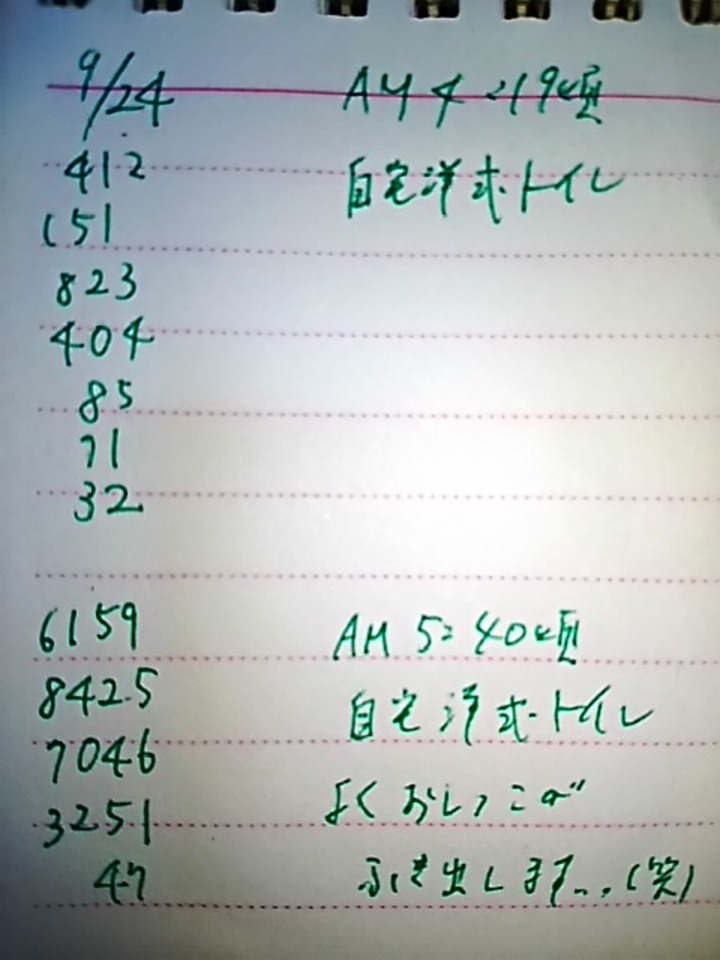 9/24 AM 4:19頃
412 自宅洋式トイレ
151
823
404
85
71
32
6159 AM 5:40頃
8425 自宅洋式トイレ
7046
3251 よくおしっこが
47 ふき出します..(笑)